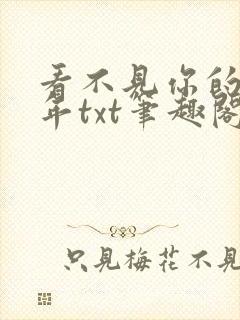 看不見你的
年txt筆趣閣
只見梅花不見